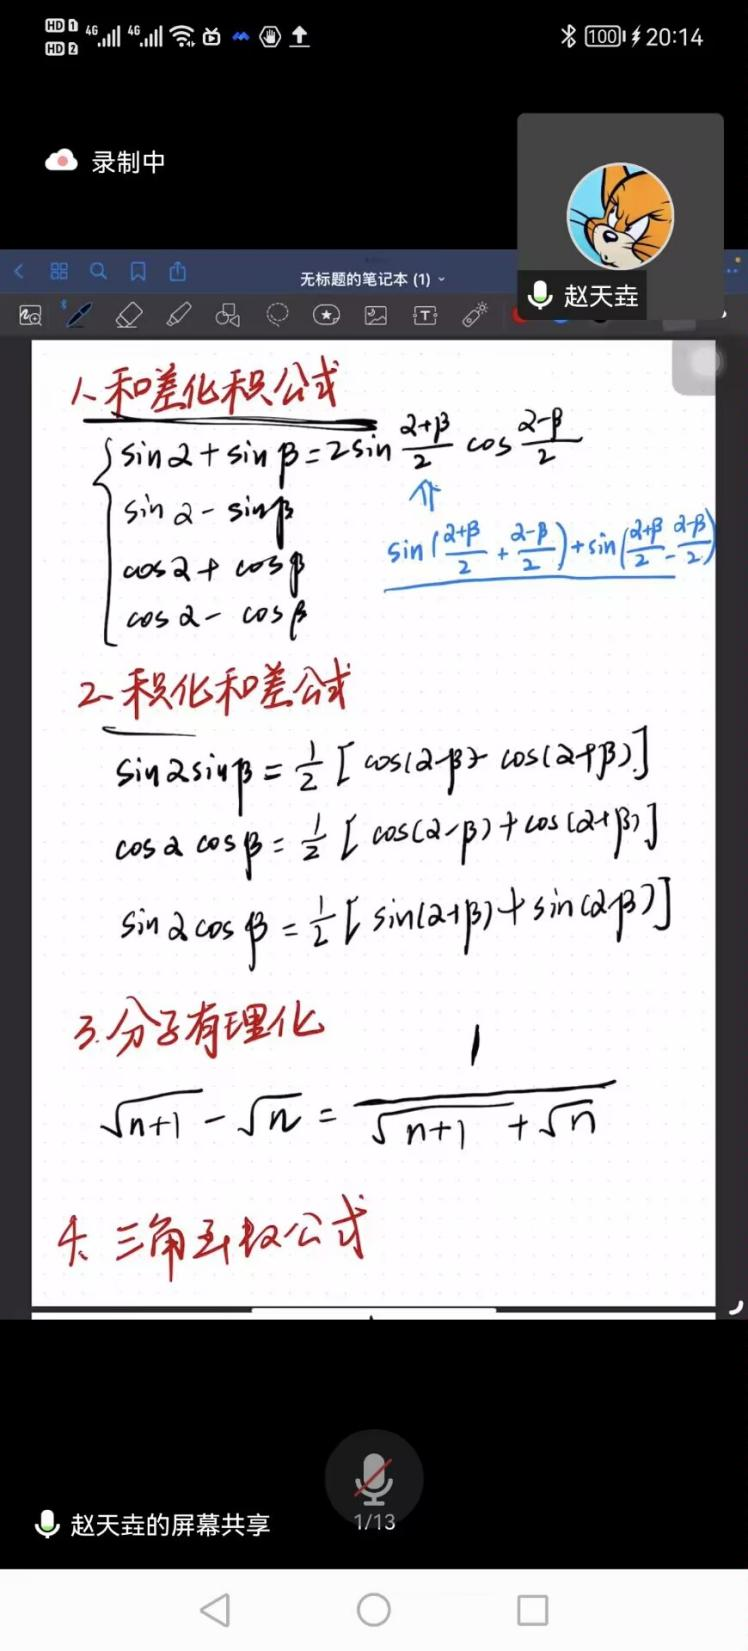 HD 1 4G 4G 100 20:14
HD 2
录制中
赵天垚
无标题的笔记本 (1)
1.和差化积公式
sinα+sinβ=2sin (α+β)/2 cos (α-β)/2
sinα-sinβ
sin((α+β)/2+(α-β)/2)+sin((α+β)/2-(α-β)/2)
cosα+cosβ
cosα-cosβ
2.积化和差公式
sinαsinβ=1/2[cos(α-β)-cos(α+β)]
cosαcosβ=1/2[cos(α-β)+cos(α+β)]
sinαcosβ=1/2[sin(α+β)+sin(α-β)]
3.分子有理化
√n+1-√n=1/(√n+1+√n)
4、三角函数公式
赵天垚的屏幕共享
1/13